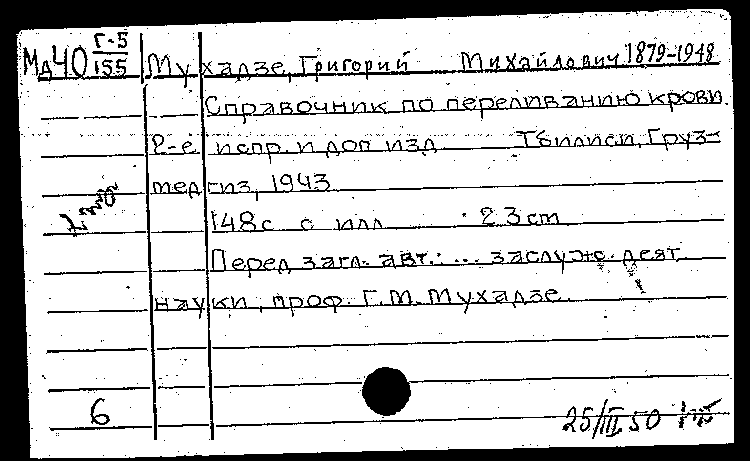 Мд40 Г-5/155 Мухадзе, Григорий Михайлович 1879-1948
Справочник по переливанию крови.
2-е испр. и доп изд Тбилиси, Груз-
медгиз, 1943
148с с илл 23 cm
Перед загл. авт.: ... заслуж. деят.
науки, проф. Г. М. Мухадзе.
6
25/III 50